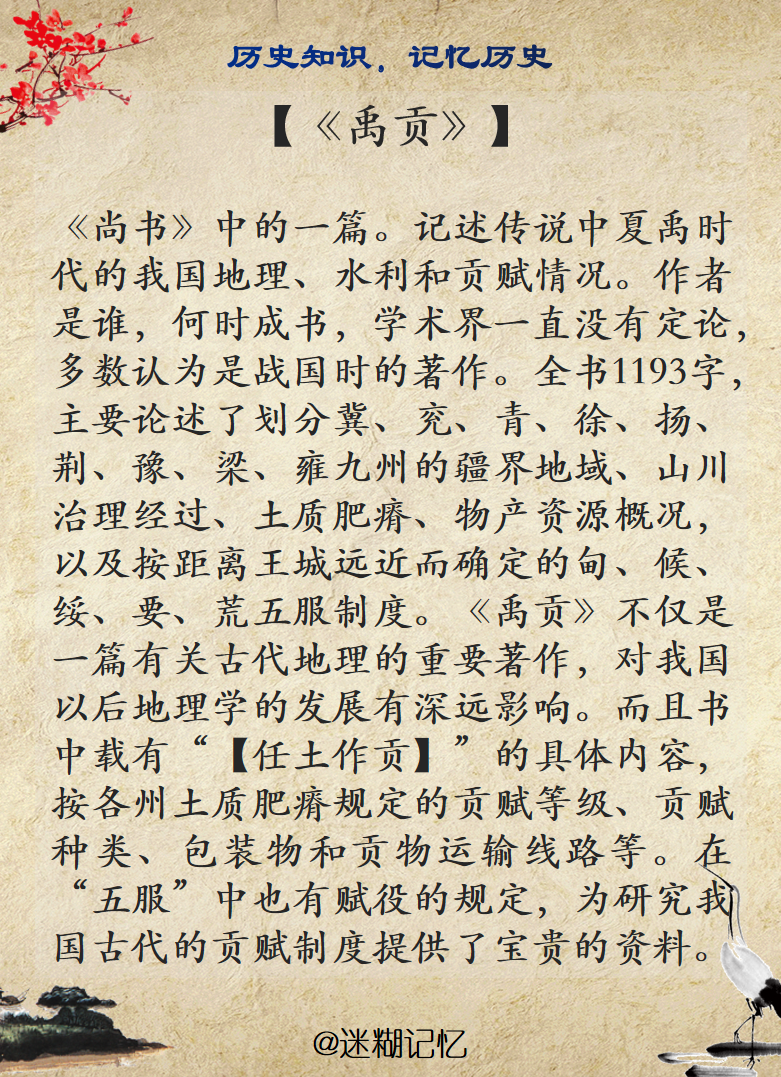 历史知识，记忆历史
【《禹贡》】
《尚书》中的一篇。记述传说中夏禹时
代的我国地理、水利和贡赋情况。作者
是谁，何时成书，学术界一直没有定论，
多数认为是战国时的著作。全书1193字，
主要论述了划分冀、兖、青、徐、扬、
荆、豫、梁、雍九州的疆界地域、山川
治理经过、土质肥瘠、物产资源概况，
以及按距离王城远近而确定的甸、候、
绥、要、荒五服制度。《禹贡》不仅是
一篇有关古代地理的重要著作，对我国
以后地理学的发展有深远影响。而且书
中载有“【任土作贡】”的具体内容，
按各州土质肥瘠规定的贡赋等级、贡赋
种类、包装物和贡物运输线路等。在
“五服”中也有赋役的规定，为研究我
国古代的贡赋制度提供了宝贵的资料。
@迷糊记忆